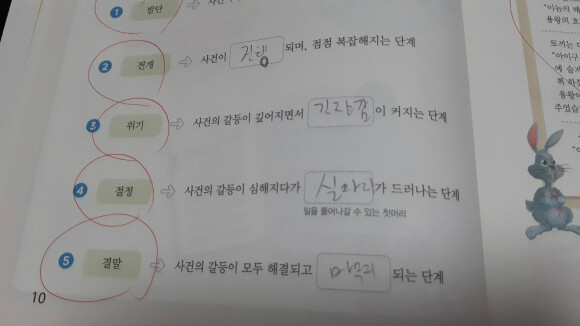 1 발단 ⇨ 사건이
2 전개 ⇨ 사건이 진행 되며, 점점 복잡해지는 단계
3 위기 ⇨ 사건의 갈등이 깊어지면서 긴장감 이 커지는 단계
4 절정 ⇨ 사건의 갈등이 심해지다가 실마리 가 드러나는 단계
일을 풀어나갈 수 있는 첫머리
5 결말 ⇨ 사건의 갈등이 모두 해결되고 마무리 되는 단계
10
"이놈의
용왕의
토끼는
"아이구
에 숨겨
용왕이
주었습